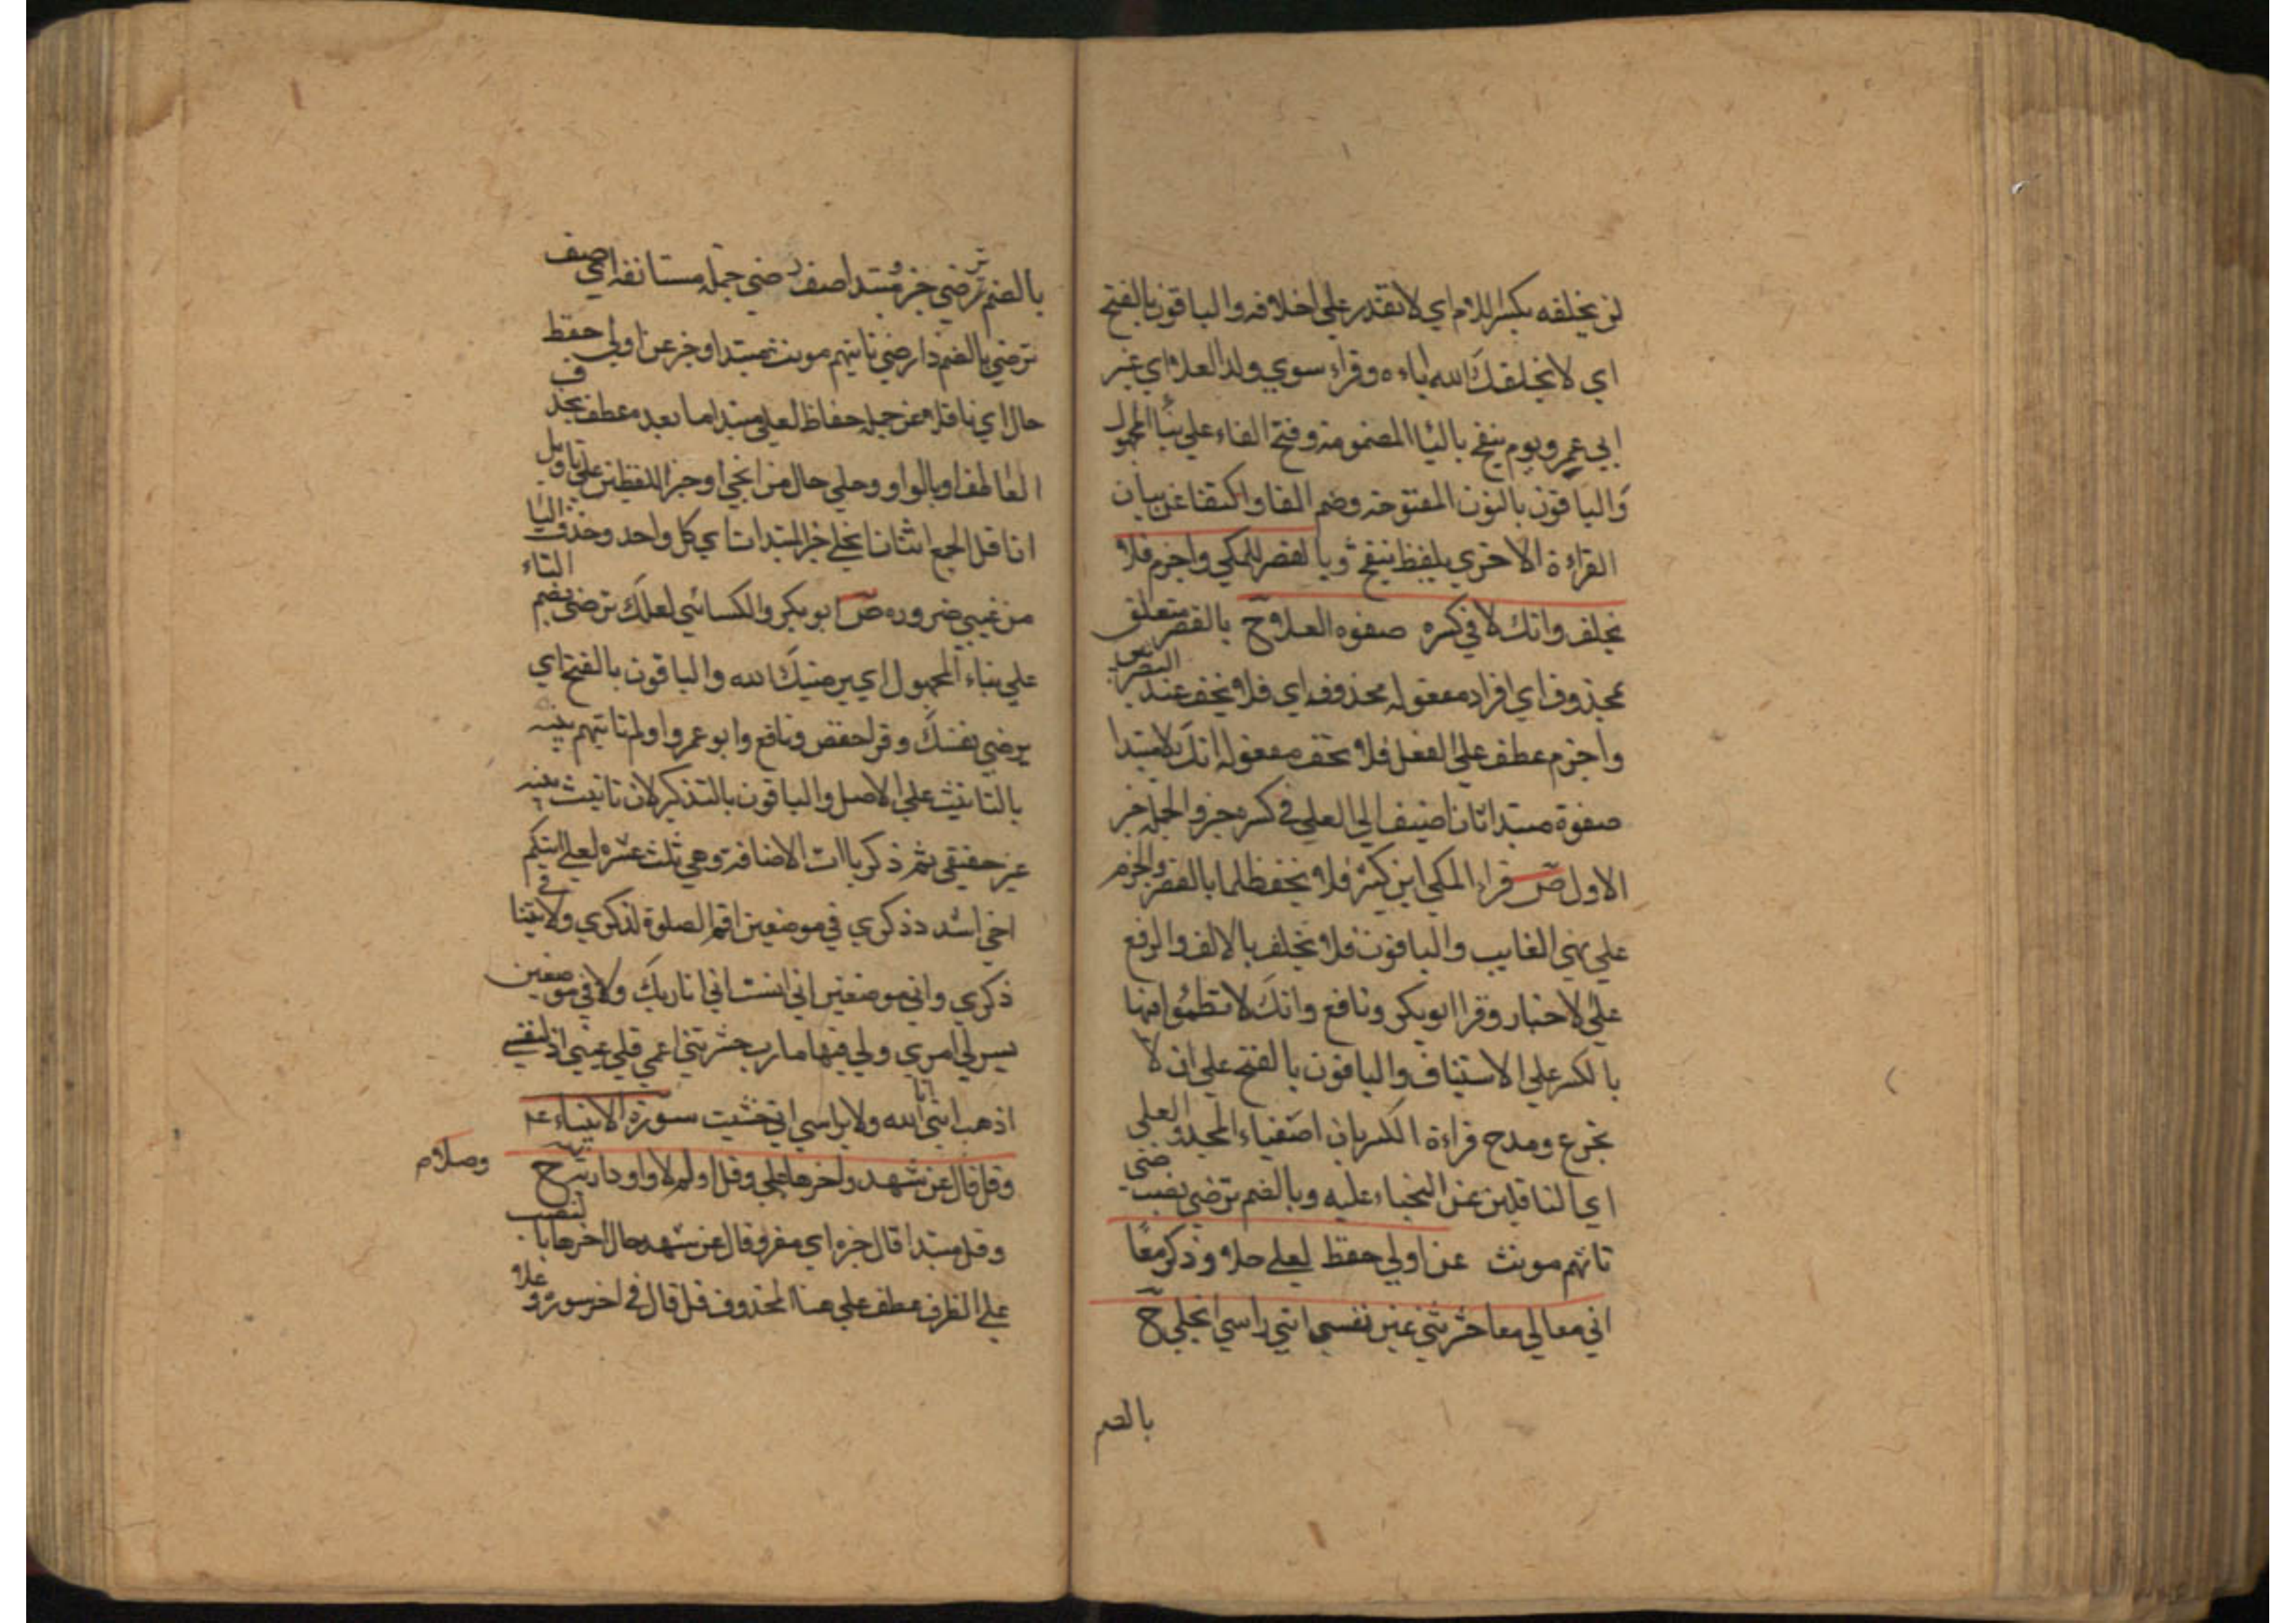 لن يخلفه بكسر اللام اي لا تقدر علي اخلافه والباقون بالفتح
اي لا يخلفك الله اياه ه وقراء سوي ولد العلا اي غير
ابي عمرو يوم ينفخ بالياا المضمومة وفتح الفاء علي بنا المجهول
والباقون بالنون المفتوحة وضم الفا واكتفا عن بيان
القراءة الاخري بلفظ ينفخ وبالقصر للمكي واجزم فلا
يخلف وانك لا في كسره صفوه العلا ح بالقصر متعلق
بمحذوف اي افراد مفعوله محذوف اي فلا يخف عند
واجزم عطف علي الفعل فلا تخف مفعوله انك لا مبتدا
صفوة مبتدا ثان اضيف الي العلي في كسره خبر والجمله خبر
الاول ص قراء المكي ابن كثير فلا يخف ظلما بالقصر والجزم
علي نهي الغايب والباقون فلا يخاف بالالف والرفع
علي الاخبار وقرا ابو بكر ونافع وانك لا تظمؤا فيها
بالكسر علي الاستيناف والباقون بالفتح علي ان لا
تجوع ومدح قراءة الكسر بان اصفياء المجد والعلي
اي الناقلين عن عليه وبالضم ترضي
تاتهم مونث عن اولي حفظ لعلي حلا وذكر معا
اني معا لي معا حشرتني عين نفسي انني راسي انجلي ح
بالضم
بالضم ترضي خبر ومبتدا صف رضي جملة مستانفه اي صف
ترضي بالضم ذا رضي تاتيهم مونث مبتدا وخبر عن اولي حفظ
حال اي ناقلا عن جملة حفاظ لعلي مبتدا ما بعد معطف بحذف
العاطف او بالواو وحلي حال من انجلي او خبر اللفظين علي تاويل
ان اقل الجمع اثنان انجلي خبر المبتدات اي كل واحد وحذف اليا
من عيني ضروره ص ابو بكر والكسائي لعلك ترضي بضم التاء
علي بناء المجهول اي يرضيك الله والباقون بالفتح اي
يرضي نفسك وقرا حفص ونافع وابو عمرو اولم تاتيهم بينه
بالتانيث علي الاصل والباقون بالتذكير لان تانيث بينه
غير حقيقي ثم ذكر ياات الاضافة وهي ثلث عشره لعلي اتيكم
اخي اشدد ذكري في موضعين اقم الصلوة لذكري ولا تنيا في
ذكري واني موضعين اني انست اني انا ربك ولا في موضعين
يسر لي امري ولي فيها مارب حشرتني اعمي علي عيني اذ لنفسي
اذهب انني انا الله ولا براسي اني خشيت سورة الانبياء عم
وقل قال عن شهد واخرها علي وقل اولم لا واو داريه ح وصلا م
وقل مبتدا قال خبره اي مقرو قال عن شهد حال اخرها بالنصب
علي الظرف عطف علي هنا المحذوف قل قال في اخر سوره و علا